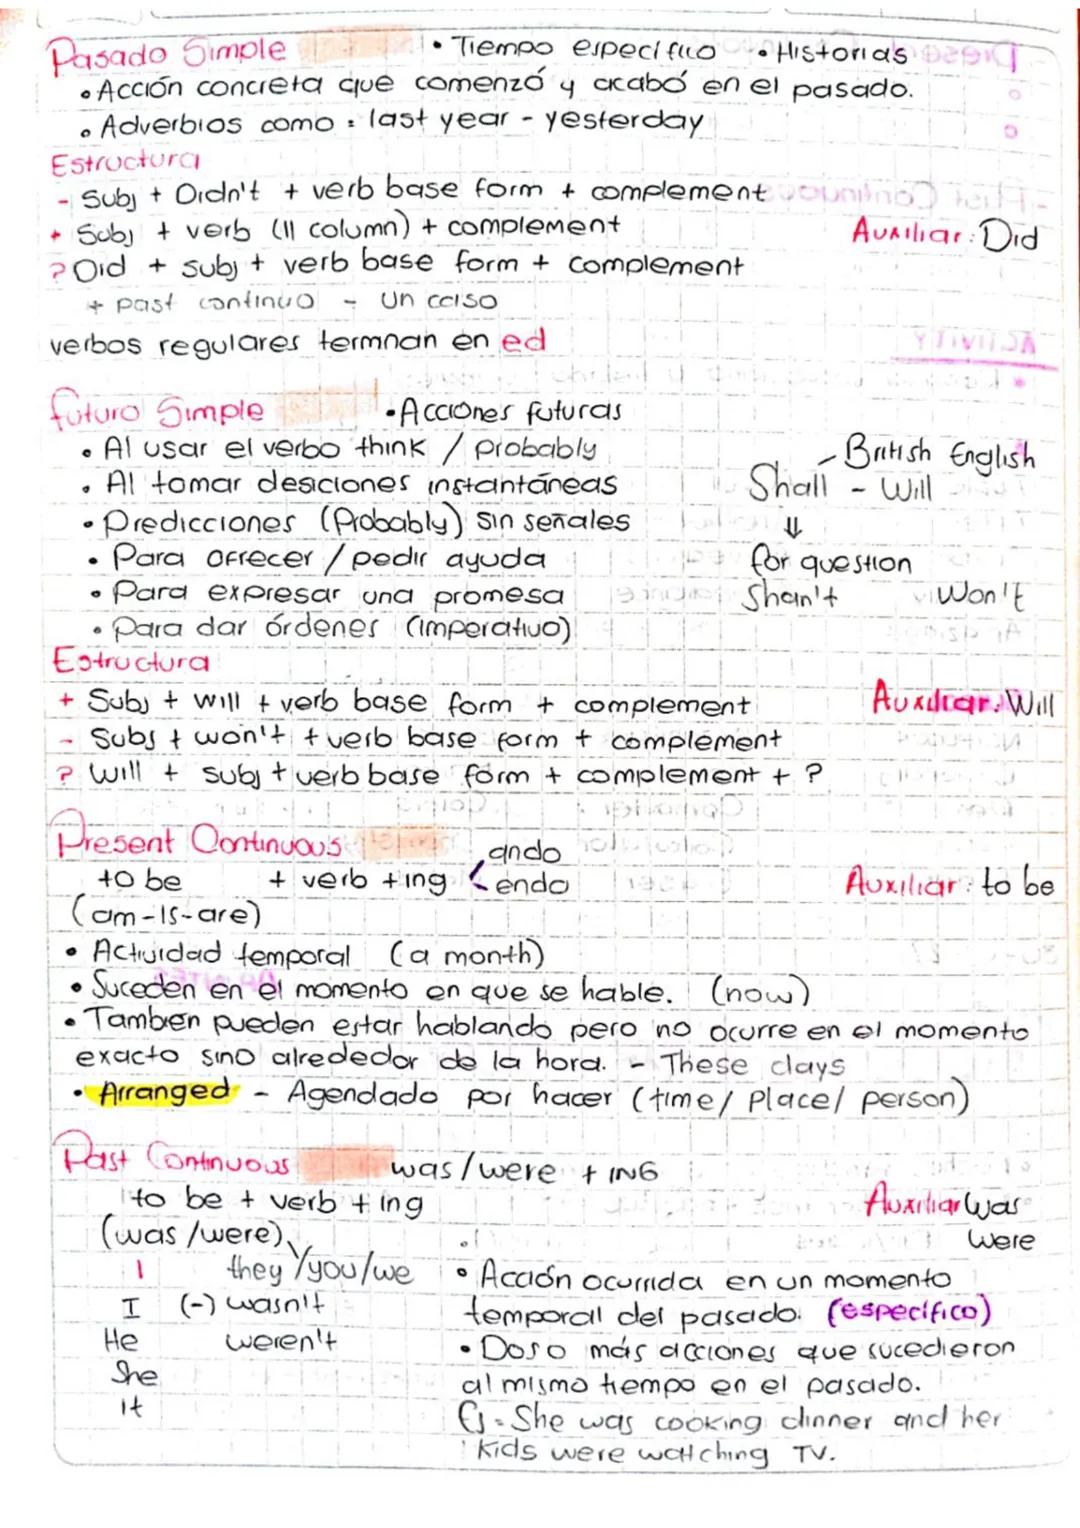 Pasado Simple • Tiempo específico • Historias
• Acción concreta que comenzó y acabó en el pasado.
• Adverbios como: last year - yesterday
Estructura
- Subj + Didn't + verb base form + complement
+ Subj + verb (II column) + complement
Auxiliar: Did
? Did + subj + verb base form + complement
+ past continuo - Un caso
verbos regulares termnan en ed
ACTIVITY
futuro Simple • Acciones futuras
• Al usar el verbo think / probably
British English
• Al tomar desiciones instantáneas
Shall - Will
• Predicciones (Probably) sin señales
⇓
• Para ofrecer / pedir ayuda
for question
• Para expresar una promesa
Shan't Won't
• Para dar órdenes (imperativo)
Estructura
+ Subj + will + verb base form + complement
Auxiliar: Will
- Subj + won't + verb base form + complement
? Will + subj + verb base form + complement + ?
Present Continuous
ando
to be + verb + ing < endo
Auxiliar: to be
(am-is-are)
• Actividad temporal (a month)
• Suceden en el momento en que se hable. (now)
• Tambien pueden estar hablando pero no ocurre en el momento
exacto sino alrededor de la hora. - These days
• Arranged - Agendado por hacer (time/ Place/ person)
Past Continuous was/were + ING
to be + verb + ing
Auxiliar Was
(was/were)
Were
they/you/we
• Acción ocurrida en un momento
I (-) wasn't
temporal del pasado. (específico)
He weren't
• Dos o más acciones que sucedieron
She
al mismo tiempo en el pasado.
it
Ej - She was cooking dinner and her
kids were watching TV.